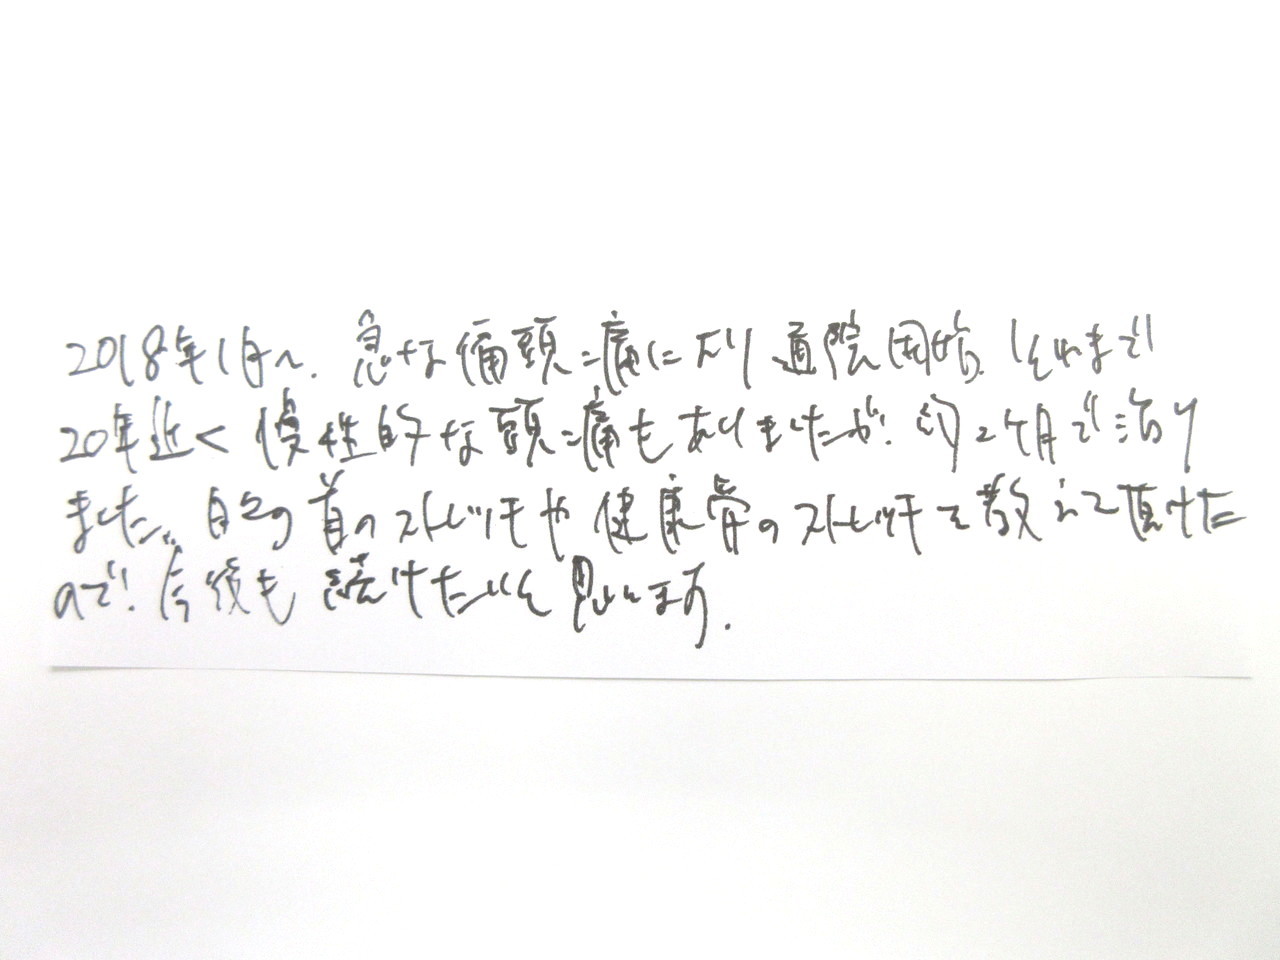 2018年1月〜、急な偏頭痛になり通院開始、それまで
20年近く慢性的な頭痛もありましたが、約2ヶ月で治り
ました。自分の首のストレッチや健康骨のストレッチを教えて頂けた
ので、今後も続けたいと思います.